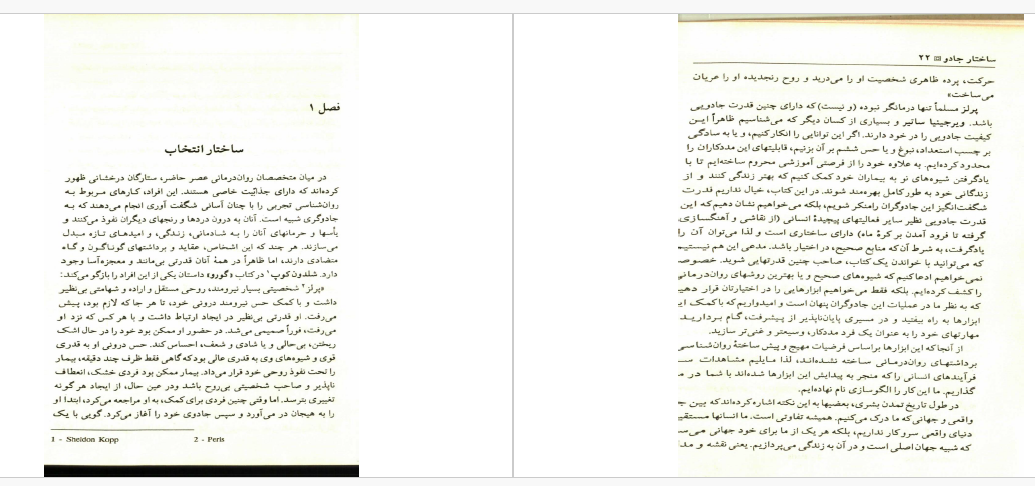 فصل ۱
ساختار انتخاب
در میان متخصصان روان‌درمانی عصر حاضر، ستارگان درخشانی ظهور
کرده‌اند که دارای جذابیت خاصی هستند. این افراد، کارهای مربوط به
روان‌شناسی تجربی را با چنان آسانی شگفت آوری انجام می‌دهند که به
جادوگری شبیه است. آنان به درون دردها و رنجهای دیگران نفوذ می‌کنند و
یأسها و حرمانهای آنان را به شادمانی، زندگی، و امیدهای تازه مبدل
می‌سازند. هر چند که این اشخاص، عقاید و برداشتهای گوناگون و گاه
متضادی دارند، اما ظاهراً در همهٔ آنان قدرتی بی‌مانند و معجزه‌آسا وجود
دارد. شلدون کوپ۱ در کتاب «گورو» داستان یکی از این افراد را بازگو می‌کند:
«پرلز۲ شخصیتی بسیار نیرومند، روحی مستقل و اراده و شهامتی بی‌نظیر
داشت و با کمک حس نیرومند درونی خود، تا هر جا که لازم بود، پیش
می‌رفت. او قدرتی بی‌نظیر در ایجاد ارتباط داشت و با هر کس که نزد او
می‌رفت، فوراً صمیمی می‌شد. در حضور او ممکن بود خود را در حال اشک
ریختن، بی‌حالی و یا شادی و شعف، احساس کند. حس درونی او به قدری
قوی و شیوه‌های وی به قدری عالی بود که گاهی فقط ظرف چند دقیقه، بیمار
را تحت نفوذ روحی خود قرار می‌داد. بیمار ممکن بود فردی خشک، انعطاف
ناپذیر و صاحب شخصیتی بی‌روح باشد ودر عین حال، از ایجاد هر گونه
تغییری بترسد. اما وقتی چنین فردی برای کمک، به او مراجعه می‌کرد، ابتدا او
را به هیجان در می‌آورد و سپس جادوی خود را آغاز می‌کرد. گویی با یک
1 - Sheldon Kopp 2 - Peris
ساختار جادو ۲۲
حرکت، پرده ظاهری شخصیت او را می‌درید و روح رنجدیده او را عریان
می‌ساخت»
پرلز مسلماً تنها درمانگر نبوده (و نیست) که دارای چنین قدرت جادویی
باشد. ویرجینیا ساتیر و بسیاری از کسان دیگر که می‌شناسیم ظاهراً این
کیفیت جادویی را در خود دارند. اگر این توانایی را انکار کنیم، و یا به سادگی
بر چسب استعداد، نبوغ و یا حس ششم بر آن بزنیم، قابلیتهای این مددکاران را
محدود کرده‌ایم. به علاوه خود را از فرصتی آموزشی محروم ساخته‌ایم تا با
یادگرفتن شیوه‌های نو به بیماران خود کمک کنیم که بهتر زندگی کنند و از
زندگانی خود به طور کامل بهره‌مند شوند. در این کتاب، خیال نداریم قدرت
شگفت‌انگیز این جادوگران رامنکر شویم، بلکه می‌خواهیم نشان دهیم که این
قدرت جادویی نظیر سایر فعالیتهای پیچیدهٔ انسانی (از نقاشی و آهنگسازی
گرفته تا فرود آمدن بر کرهٔ ماه) دارای ساختاری است و لذا می‌توان آن را
یادگرفت، به شرط آن که منابع صحیح، در اختیار باشد. مدعی این هم نیستیم
که می‌توانید با خواندن یک کتاب، صاحب چنین قدرتهایی شوید.
نمی‌خواهیم ادعا کنیم که شیوه‌های صحیح و یا بهترین روشهای روان‌درمانی
را کشف کرده‌ایم. بلکه فقط می‌خواهیم ابزارهایی را در اختیارتان قرار دهیم
که به نظر ما در عملیات این جادوگران پنهان است و امیدواریم که با کمک این
ابزارها به راه بیفتید و در مسیری پایان‌ناپذیر از پیشرفت، گام بردارید
مهارتهای خود را به عنوان یک فرد مددکار، وسیعتر و غنی‌تر سازید.
از آنجا که این ابزارها براساس فرضیات مهیج و پیش ساختهٔ روان‌شناسی
برداشتهای روان‌درمانی ساخته نشده‌اند، لذا مایلیم مشاهدات
فرآیندهای انسانی را که منجر به پیدایش این ابزارها شده‌اند با شما در
گذاریم. ما این کار را الگوسازی نام نهاده‌ایم.
در طول تاریخ تمدن بشری، بعضیها به این نکته اشاره کرده‌اند که بین
واقعی و جهانی که ما درک می‌کنیم. همیشه تفاوتی است. ما انسانها
دنیای واقعی سرو کار نداریم، بلکه هر یک از ما برای خود جهانی
که شبیه جهان اصلی است و در آن به زندگی می‌پردازیم. یعنی نقشه و